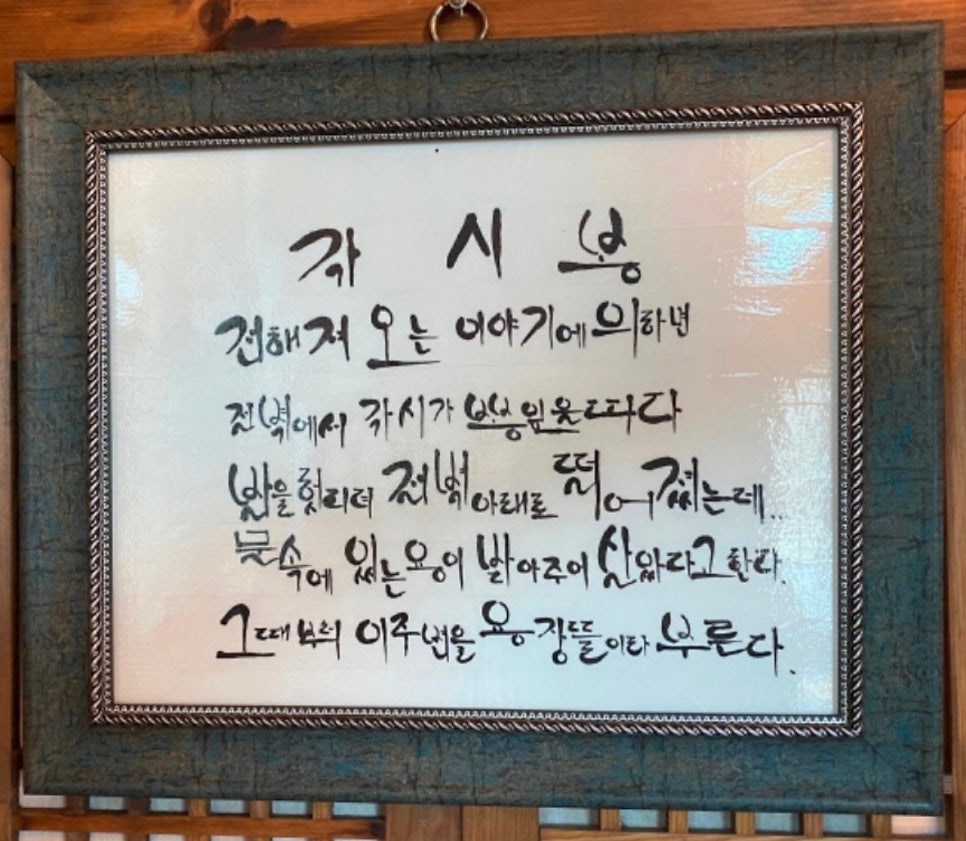 각 시 봉
전해져 오는 이야기에 의하면
절벽에서 각시가 뽕잎을 따다
발을 헛디뎌 절벽 아래로 떨어 졌는데...
물속에 있는 용이 받아주어 살았다고 한다.
그때부터 이주변을 용장뜰이라 부른다.